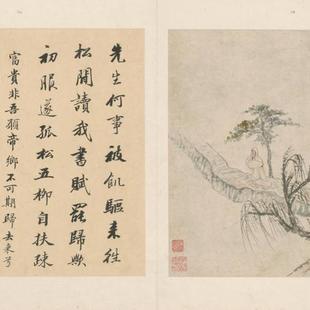 先生何事被飢驅來往
松閒讀我書賦罷歸歟
初服遂孤松五柳自扶疎
富貴非吾願帝鄉不可期歸去來兮